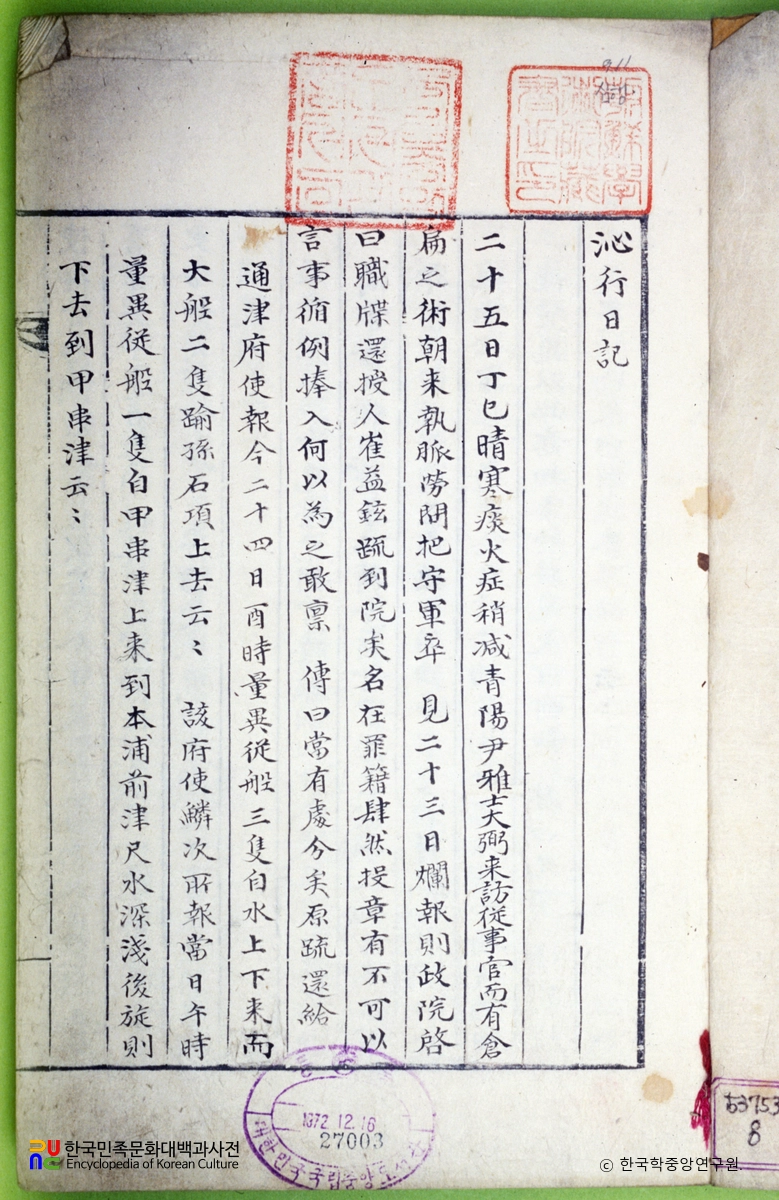 沁行日記
二十五日丁巳晴寒痰火症稍减青陽尹雅士大弼来訪従事官而有倉
扁之術朝来執脈勞問把守軍卒 見二十三日爛報則政院啓
曰職牒還授人崔益鉉疏到院矣名在罪籍肆然投章有不可以
言事循例捧入何以為之敢禀 傳曰當有處分矣原疏還給
通津府使報今二十四日酉時量異従船三隻自水上下来而
大船二隻踰孫石項上去云〻 該府使鱗次所報當日午時
量異従船一隻自甲串津上来到本浦前津尺水深淺後旋則
下去到甲串津云〻
1972.12.16
27003
대한민국국립중앙도서관
古3753
8
한국민족문화대백과사전
Encyclopedia of Korean Culture
© 한국학중앙연구원